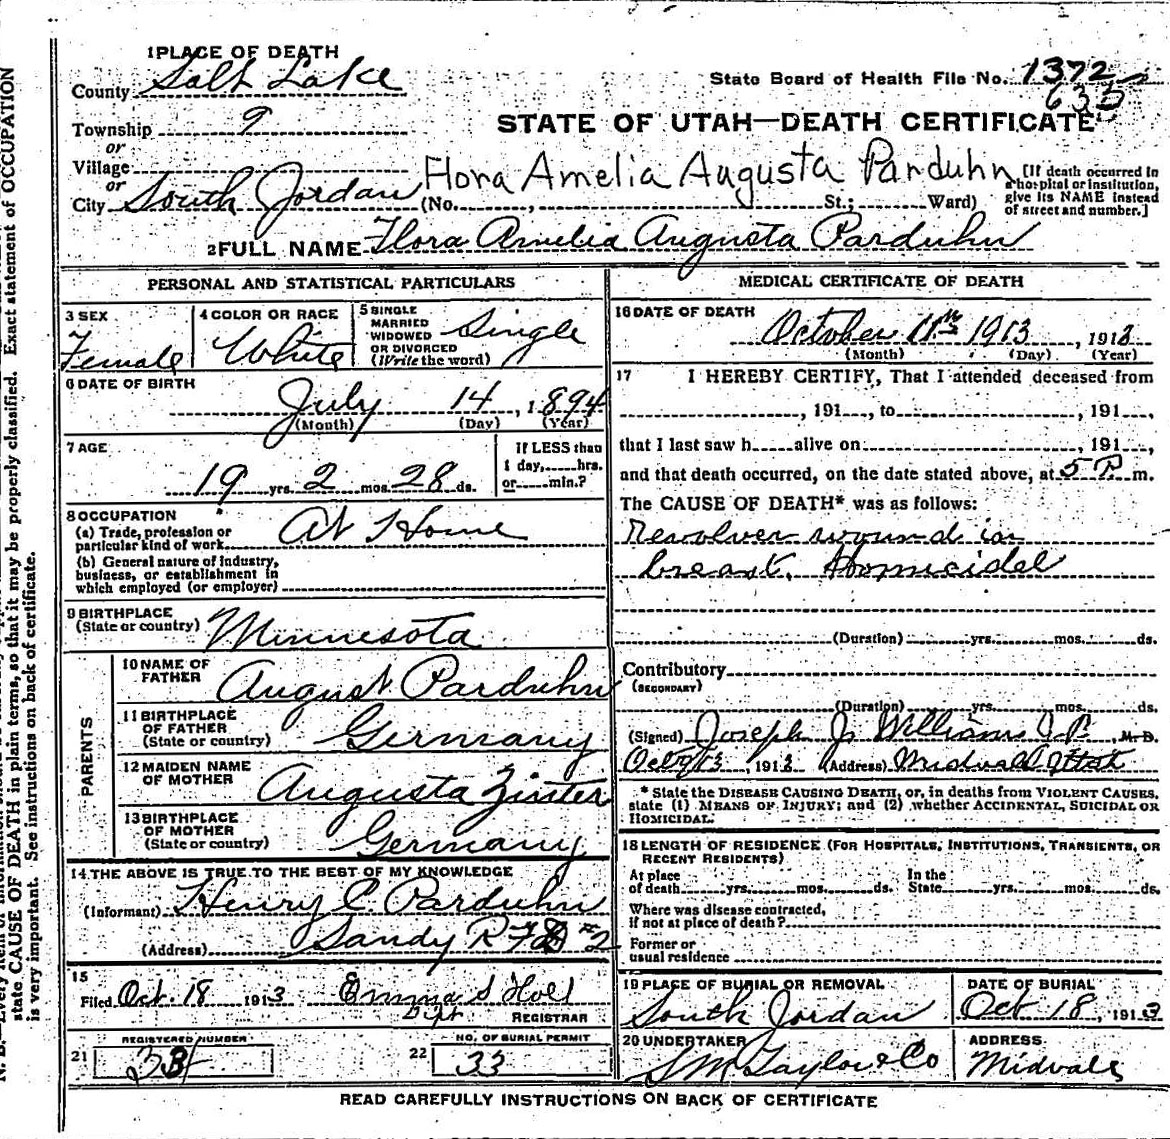 1 PLACE OF DEATH
County Salt Lake
State Board of Health File No. 1372
633
Township 9
or
Village
or
City South Jordan
STATE OF UTAH—DEATH CERTIFICATE
Flora Amelia Augusta Parduhn
(No. , St.; Ward)
[If death occurred in a hospital or institution, give its NAME instead of street and number.]
2 FULL NAME Flora Amelia Augusta Parduhn
PERSONAL AND STATISTICAL PARTICULARS
3 SEX
Female
4 COLOR OR RACE
White
5 SINGLE
MARRIED
WIDOWED
OR DIVORCED
(Write the word)
Single
6 DATE OF BIRTH
July 14, 1894
(Month) (Day) (Year)
7 AGE
19 yrs. 2 mos. 28 ds.
If LESS than
1 day, hrs.
or min.?
8 OCCUPATION
(a) Trade, profession or
particular kind of work At Home
(b) General nature of industry,
business, or establishment in
which employed (or employer)
9 BIRTHPLACE
(State or country) Minnesota
PARENTS
10 NAME OF
FATHER August Parduhn
11 BIRTHPLACE
OF FATHER
(State or country) Germany
12 MAIDEN NAME
OF MOTHER Augusta Zinter
13 BIRTHPLACE
OF MOTHER
(State or country) Germany
14 THE ABOVE IS TRUE TO THE BEST OF MY KNOWLEDGE
(Informant) Henry C. Parduhn
(Address) Sandy R F D #2
15
Filed Oct. 18 1913 Emma S Holt
Dept REGISTRAR
REGISTERED NUMBER
21
NO. OF BURIAL PERMIT
22 33
MEDICAL CERTIFICATE OF DEATH
16 DATE OF DEATH
October 11th 1913, 1913
(Month) (Day) (Year)
17 I HEREBY CERTIFY, That I attended deceased from
, 191 , to , 191 ,
that I last saw h alive on , 191 ,
and that death occurred, on the date stated above, at 5 P. m.
The CAUSE OF DEATH* was as follows:
Revolver wound in
breast. Homicidel
(Duration) yrs. mos. ds.
Contributory
(SECONDARY)
(Duration) yrs. mos. ds.
(Signed) Joseph J. Williams J.P. , M. D.
1913 (Address) Midvale Utah
* State the DISEASE CAUSING DEATH, or, in deaths from VIOLENT CAUSES,
state (1) MEANS OF INJURY; and (2) whether ACCIDENTAL, SUICIDAL OR
HOMICIDAL.
18 LENGTH OF RESIDENCE (FOR HOSPITALS, INSTITUTIONS, TRANSIENTS, OR
RECENT RESIDENTS)
At place
of death yrs. mos. ds.
In the
State yrs. mos. ds.
Where was disease contracted,
if not at place of death?
Former or
usual residence
19 PLACE OF BURIAL OR REMOVAL
South Jordan
DATE OF BURIAL
Oct 18, 1913
20 UNDERTAKER
S M Taylor & Co
ADDRESS
Midvale
READ CAREFULLY INSTRUCTIONS ON BACK OF CERTIFICATE
state CAUSE OF DEATH in plain terms, so that it may be properly classified. Exact statement of OCCUPATION
is very important. See instructions on back of certificate.